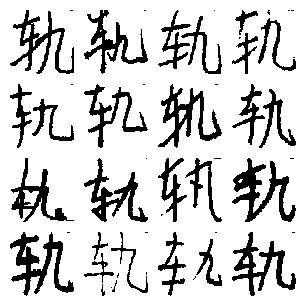 轨轨轨轨
轨轨轨轨
轨轨轨轨
轨轨轨轨